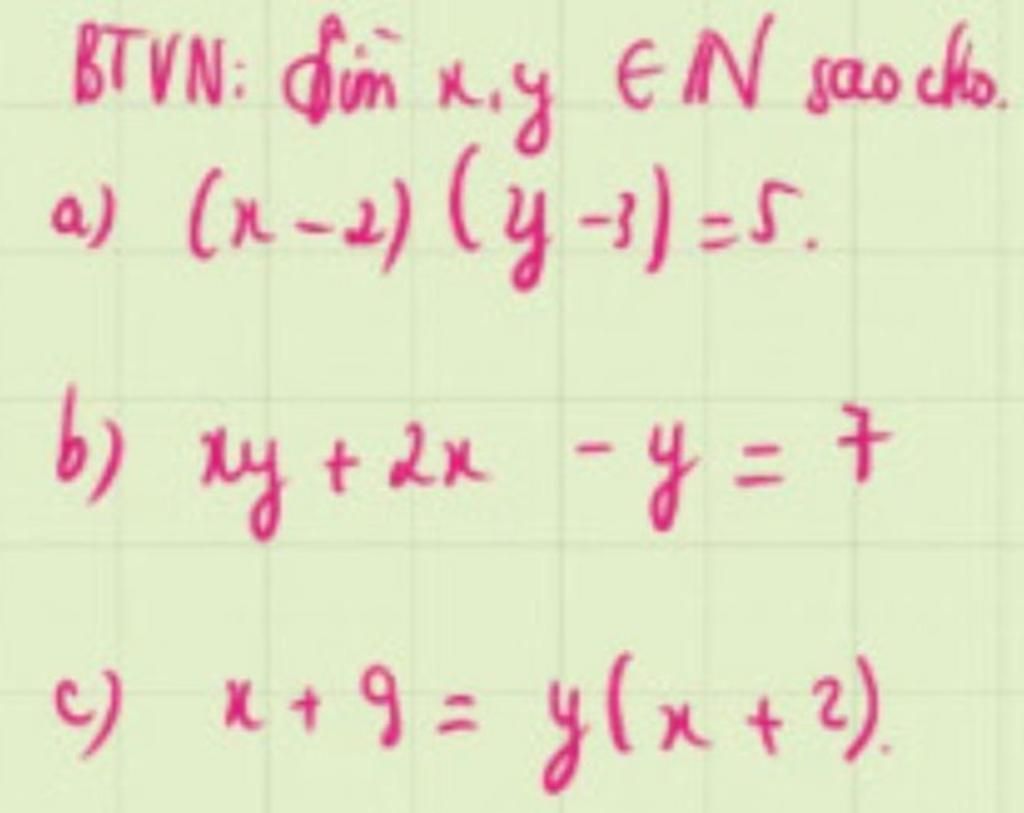 BTVN: Tìm x, y ∈ N sao cho.
a) (x - 2) (y - 3) = 5.
b) xy + 2x - y = 7
c) x + 9 = y(x + 2).